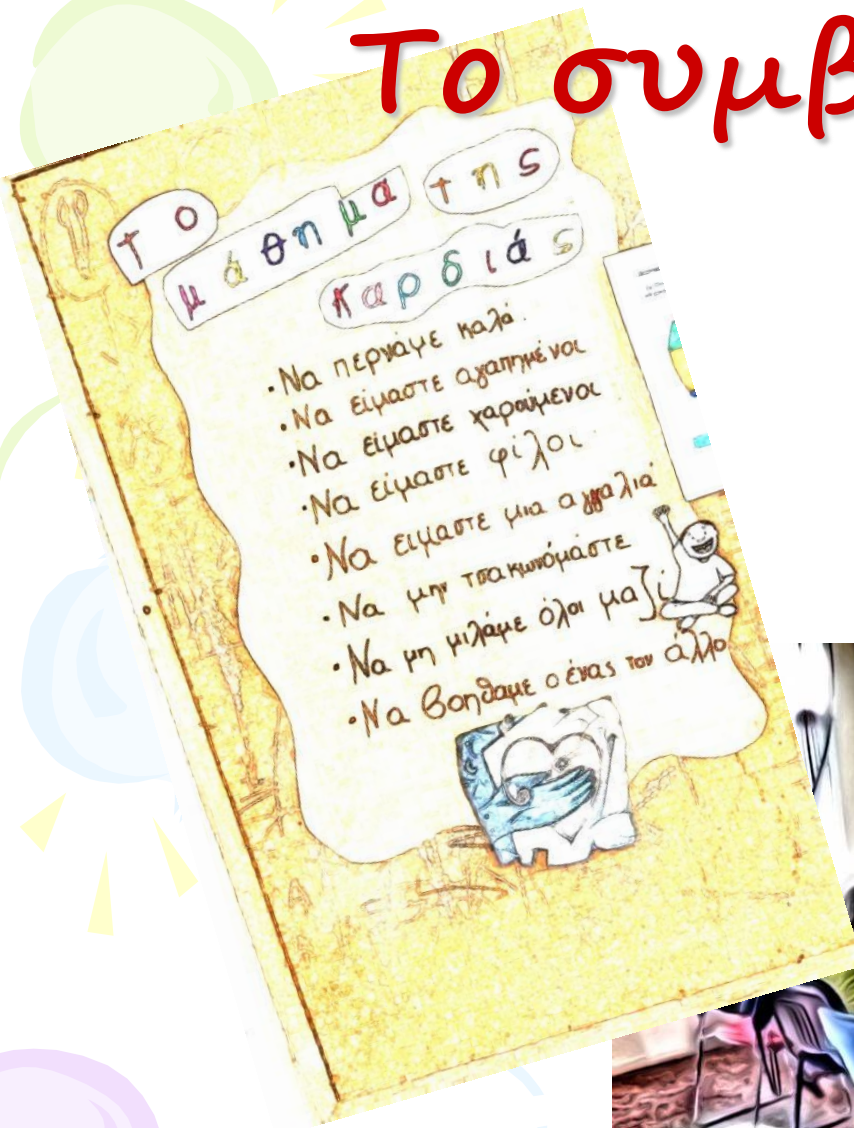 Το συμβ
το
μάθημα της
καρδιάς
·Να περνάμε καλά.
·Να είμαστε αγαπημένοι
·Να είμαστε χαρούμενοι
·Να είμαστε φίλοι
·Να ειμαστε μια αγγαλιά
·Να μην τσακωνόμαστε
·Να μη μιλάμε όλοι μαζί
·Να βοηθαμε ο ένας τον άλλο